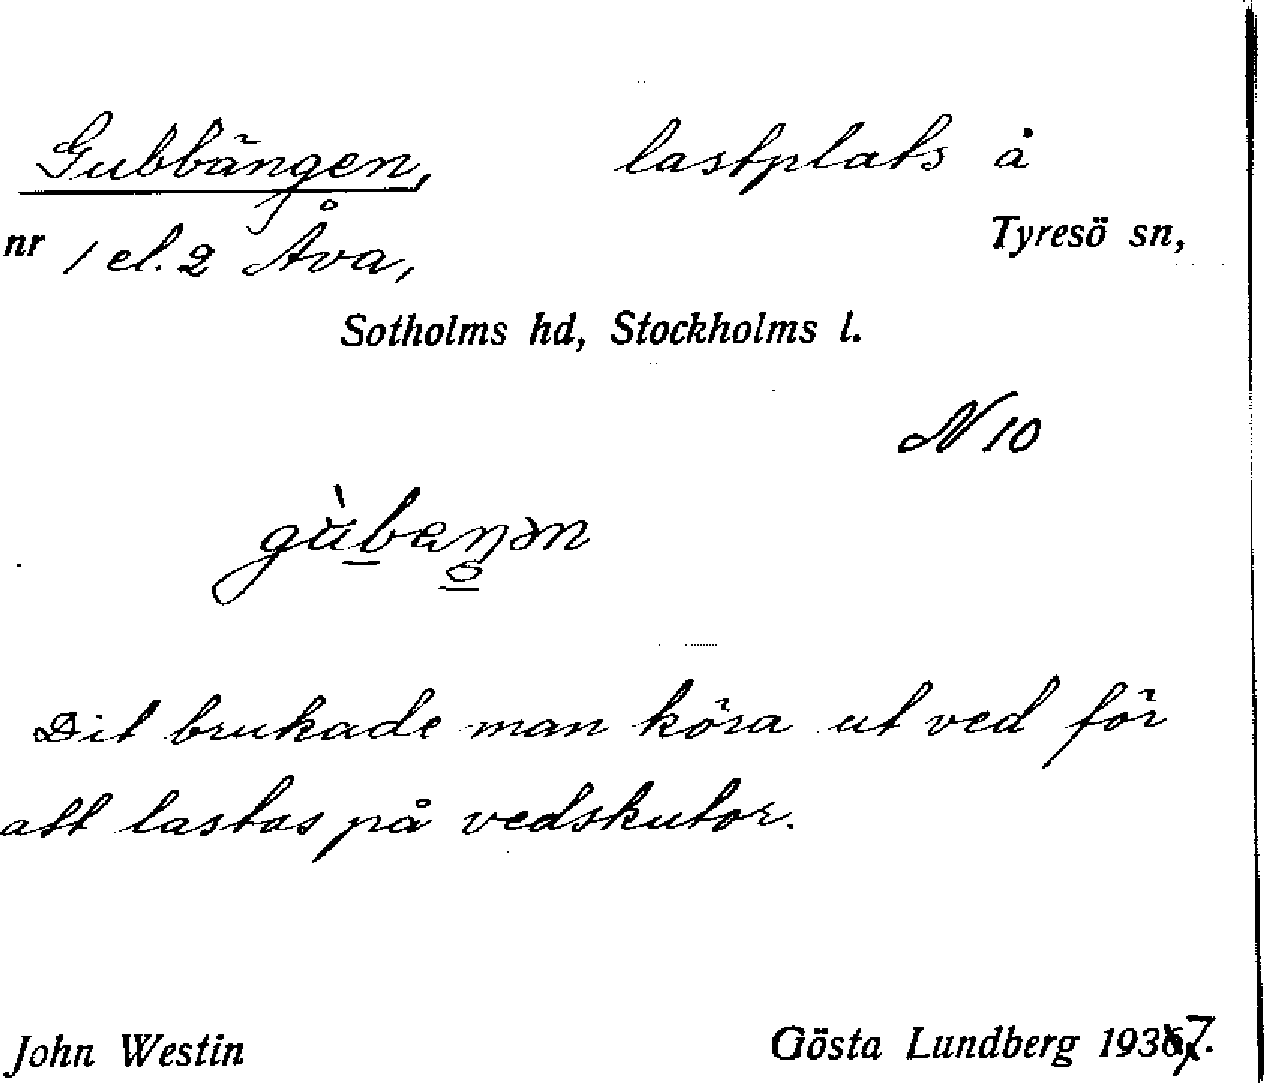 Gubbängen, lastplats å
nr 1 el. 2 Åva, Tyresö sn,
Sotholms hd, Stockholms l.
N 10
Dit brukade man köra ut ved för
att lastas på vedskutor.
John Westin Gösta Lundberg 1937.